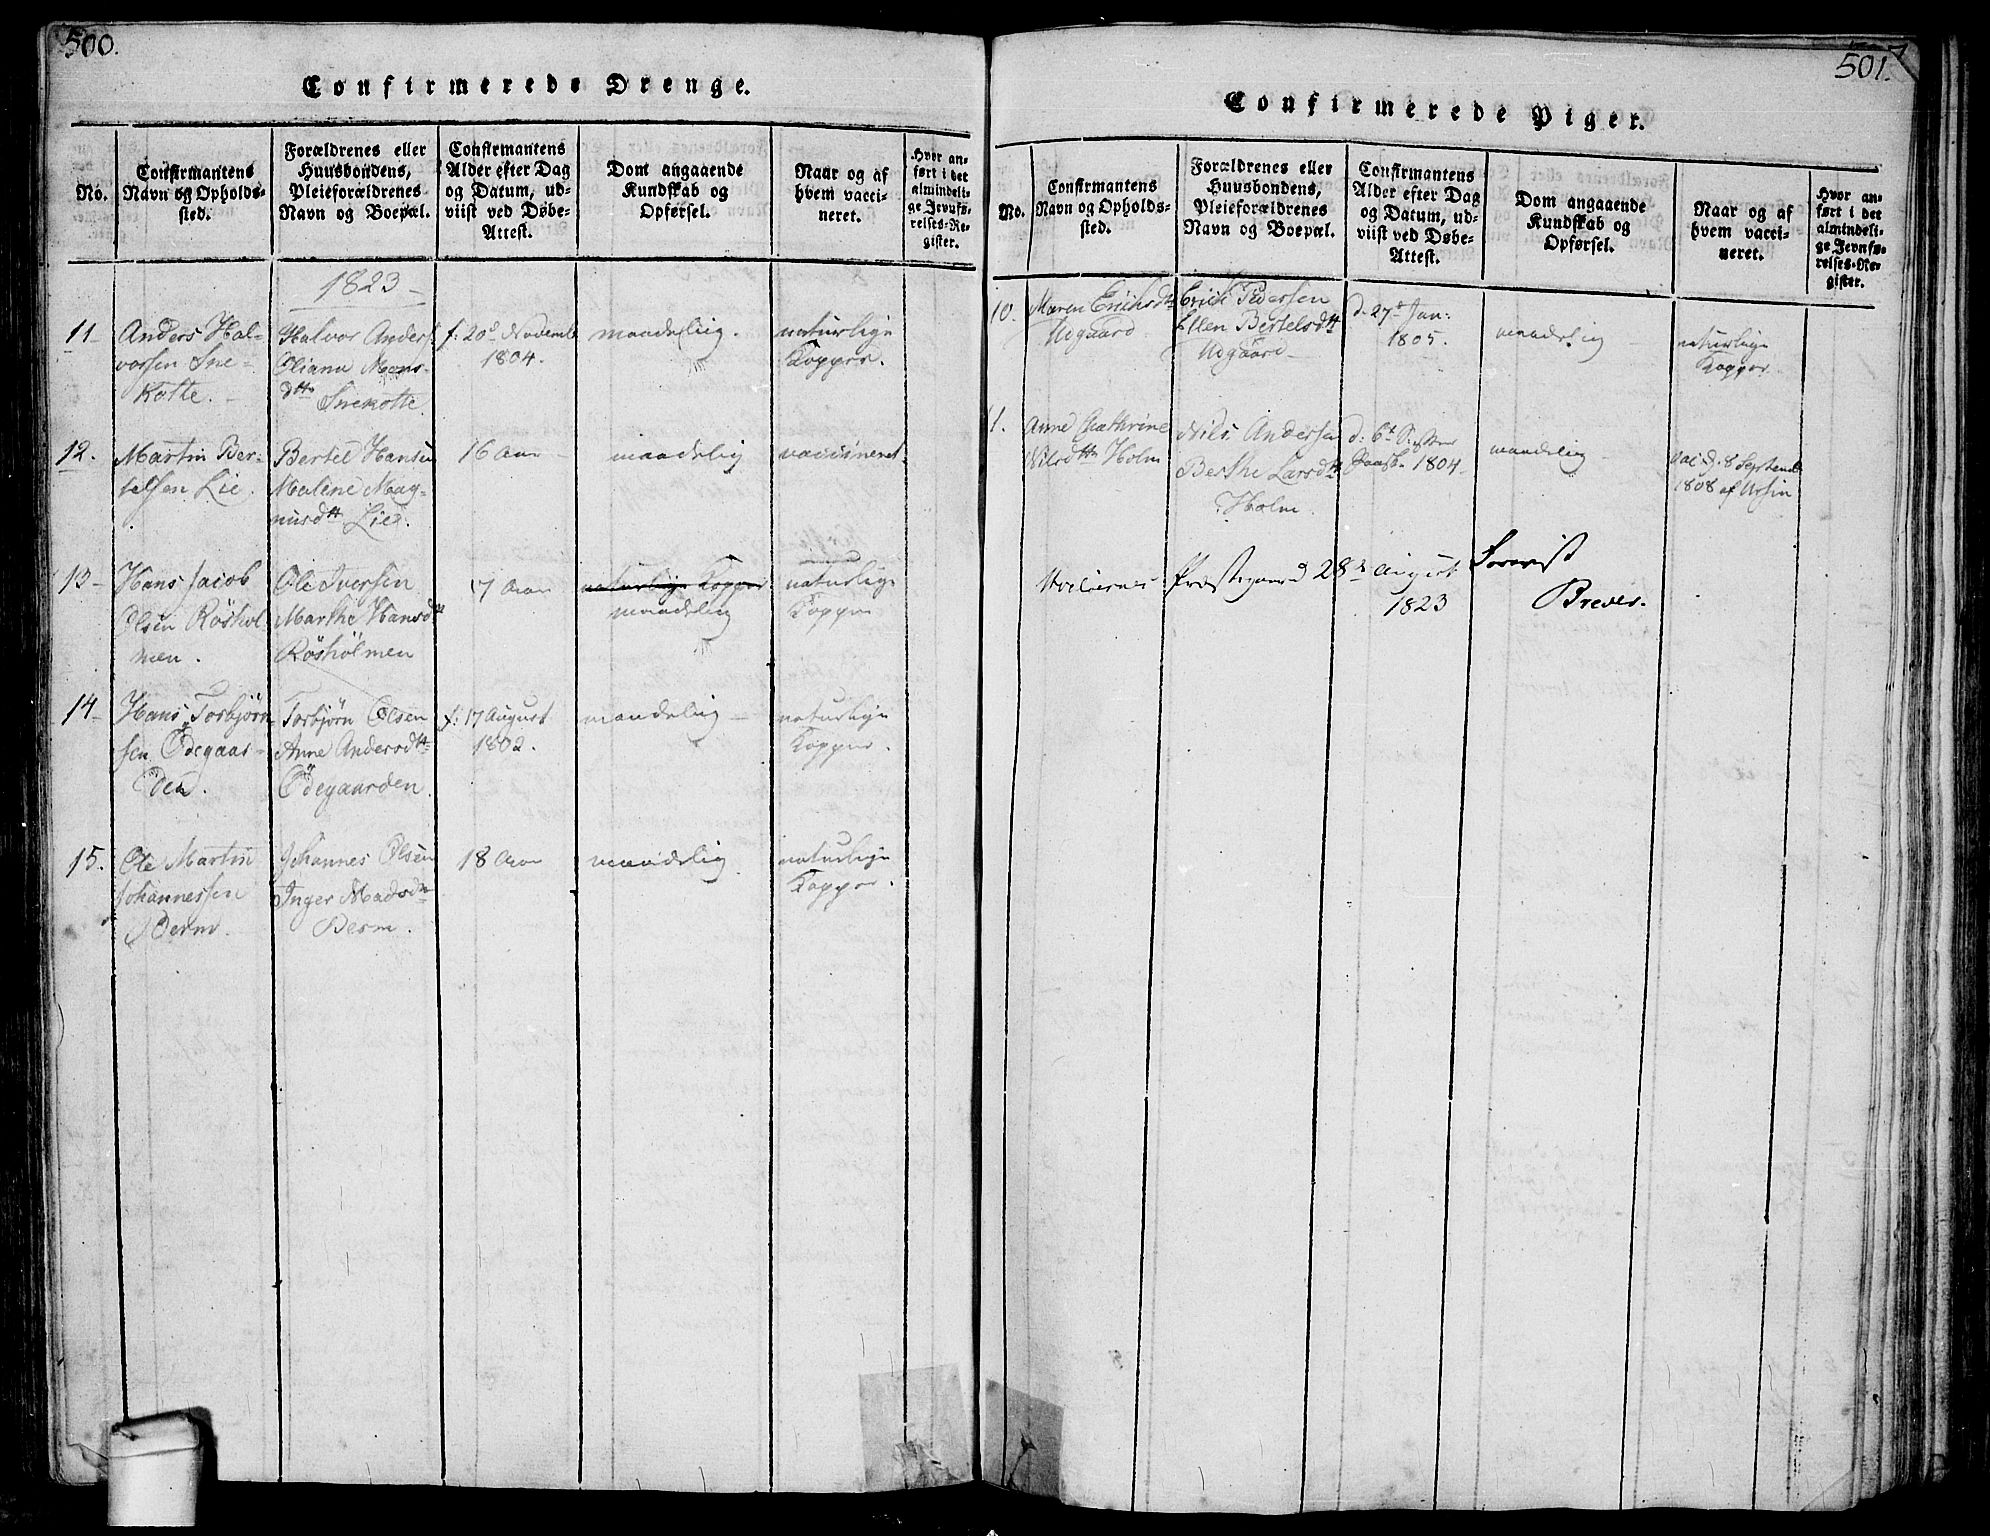 500.
Confirmerede Drenge.
No.
Confirmantens
Navn og Opholds-
sted.
Forældrenes eller
Huusbondens,
Pleieforældrenes
Navn og Boepæl.
Confirmantens
Alder efter Dag
og Datum, ud-
viist ved Døbe-
Attest.
Dom angaaende
Kundskab og
Opførsel.
Naar og af
hvem vacci-
neret.
Hvor an-
ført i det
almindeli-
ge Jevnfø-
relses-Re-
gister.
1823
11
Anders Hal-
vorsen Sne-
Kotte.
Halvor Anders
Oliana Mons-
dtr
Snekotte.
f: 20d Novemb
1804.
maadelig.
naturlige
Kopper.
12.
Martin Ber-
telsen Lie.
Bertel Hansen
Malene Mag-
nusdtt Lie.
16 Aar
maadelig
vaccineret
13
Hans Jacob
Olsen Röshol-
men.
Ole Iversen
Marthe Hansdtt
Rösholmen
17 Aar
naturlige Kopper
maadelig
naturlige
Kopper
14
Hans Torbjørn
sen Ödegaar-
den.
Torbjørn Olsen
Anne Andersdtt
Ödegaarden.
f: 17 August
1802.
maadelig
naturlige
Kopper.
15.
Ole Martin
Johannessen
Berm.
Johannes Olsen
Inger Madsdtr
Berm.
18 Aar
maadelig
naturlige
Kopper.
501.
Confirmerede Piger.
No.
Confirmantens
Navn og Opholds-
sted.
Forældrenes eller
Huusbondens,
Pleieforældrenes
Navn og Boepæl.
Confirmantens
Alder efter Dag
og Datum, ud-
viist ved Døbe-
Attest.
Dom angaaende
Kundskab og
Opførsel.
Naar og af
hvem vacci-
neret.
Hvor an-
ført i det
almindeli-
ge Jevnfø-
relses-Re-
gister.
10.
Maren Erichsdtr
Udgaard
Erich Pedersen
Ellen Bertelsdtt
Udgaard
d. 27d Jan:
1805.
maadelig
naturlige
Kopper.
11.
Anne Cathrine
Nilsdtr Holm
Nils Andersen
Berthe Larsdtt
Holm.
d: 6te S. efter
Paaske 1804
maadelig
vac: d. 8 Septemb
1808 af Ursin
Præstegaard 28d August
1823
Foreviist